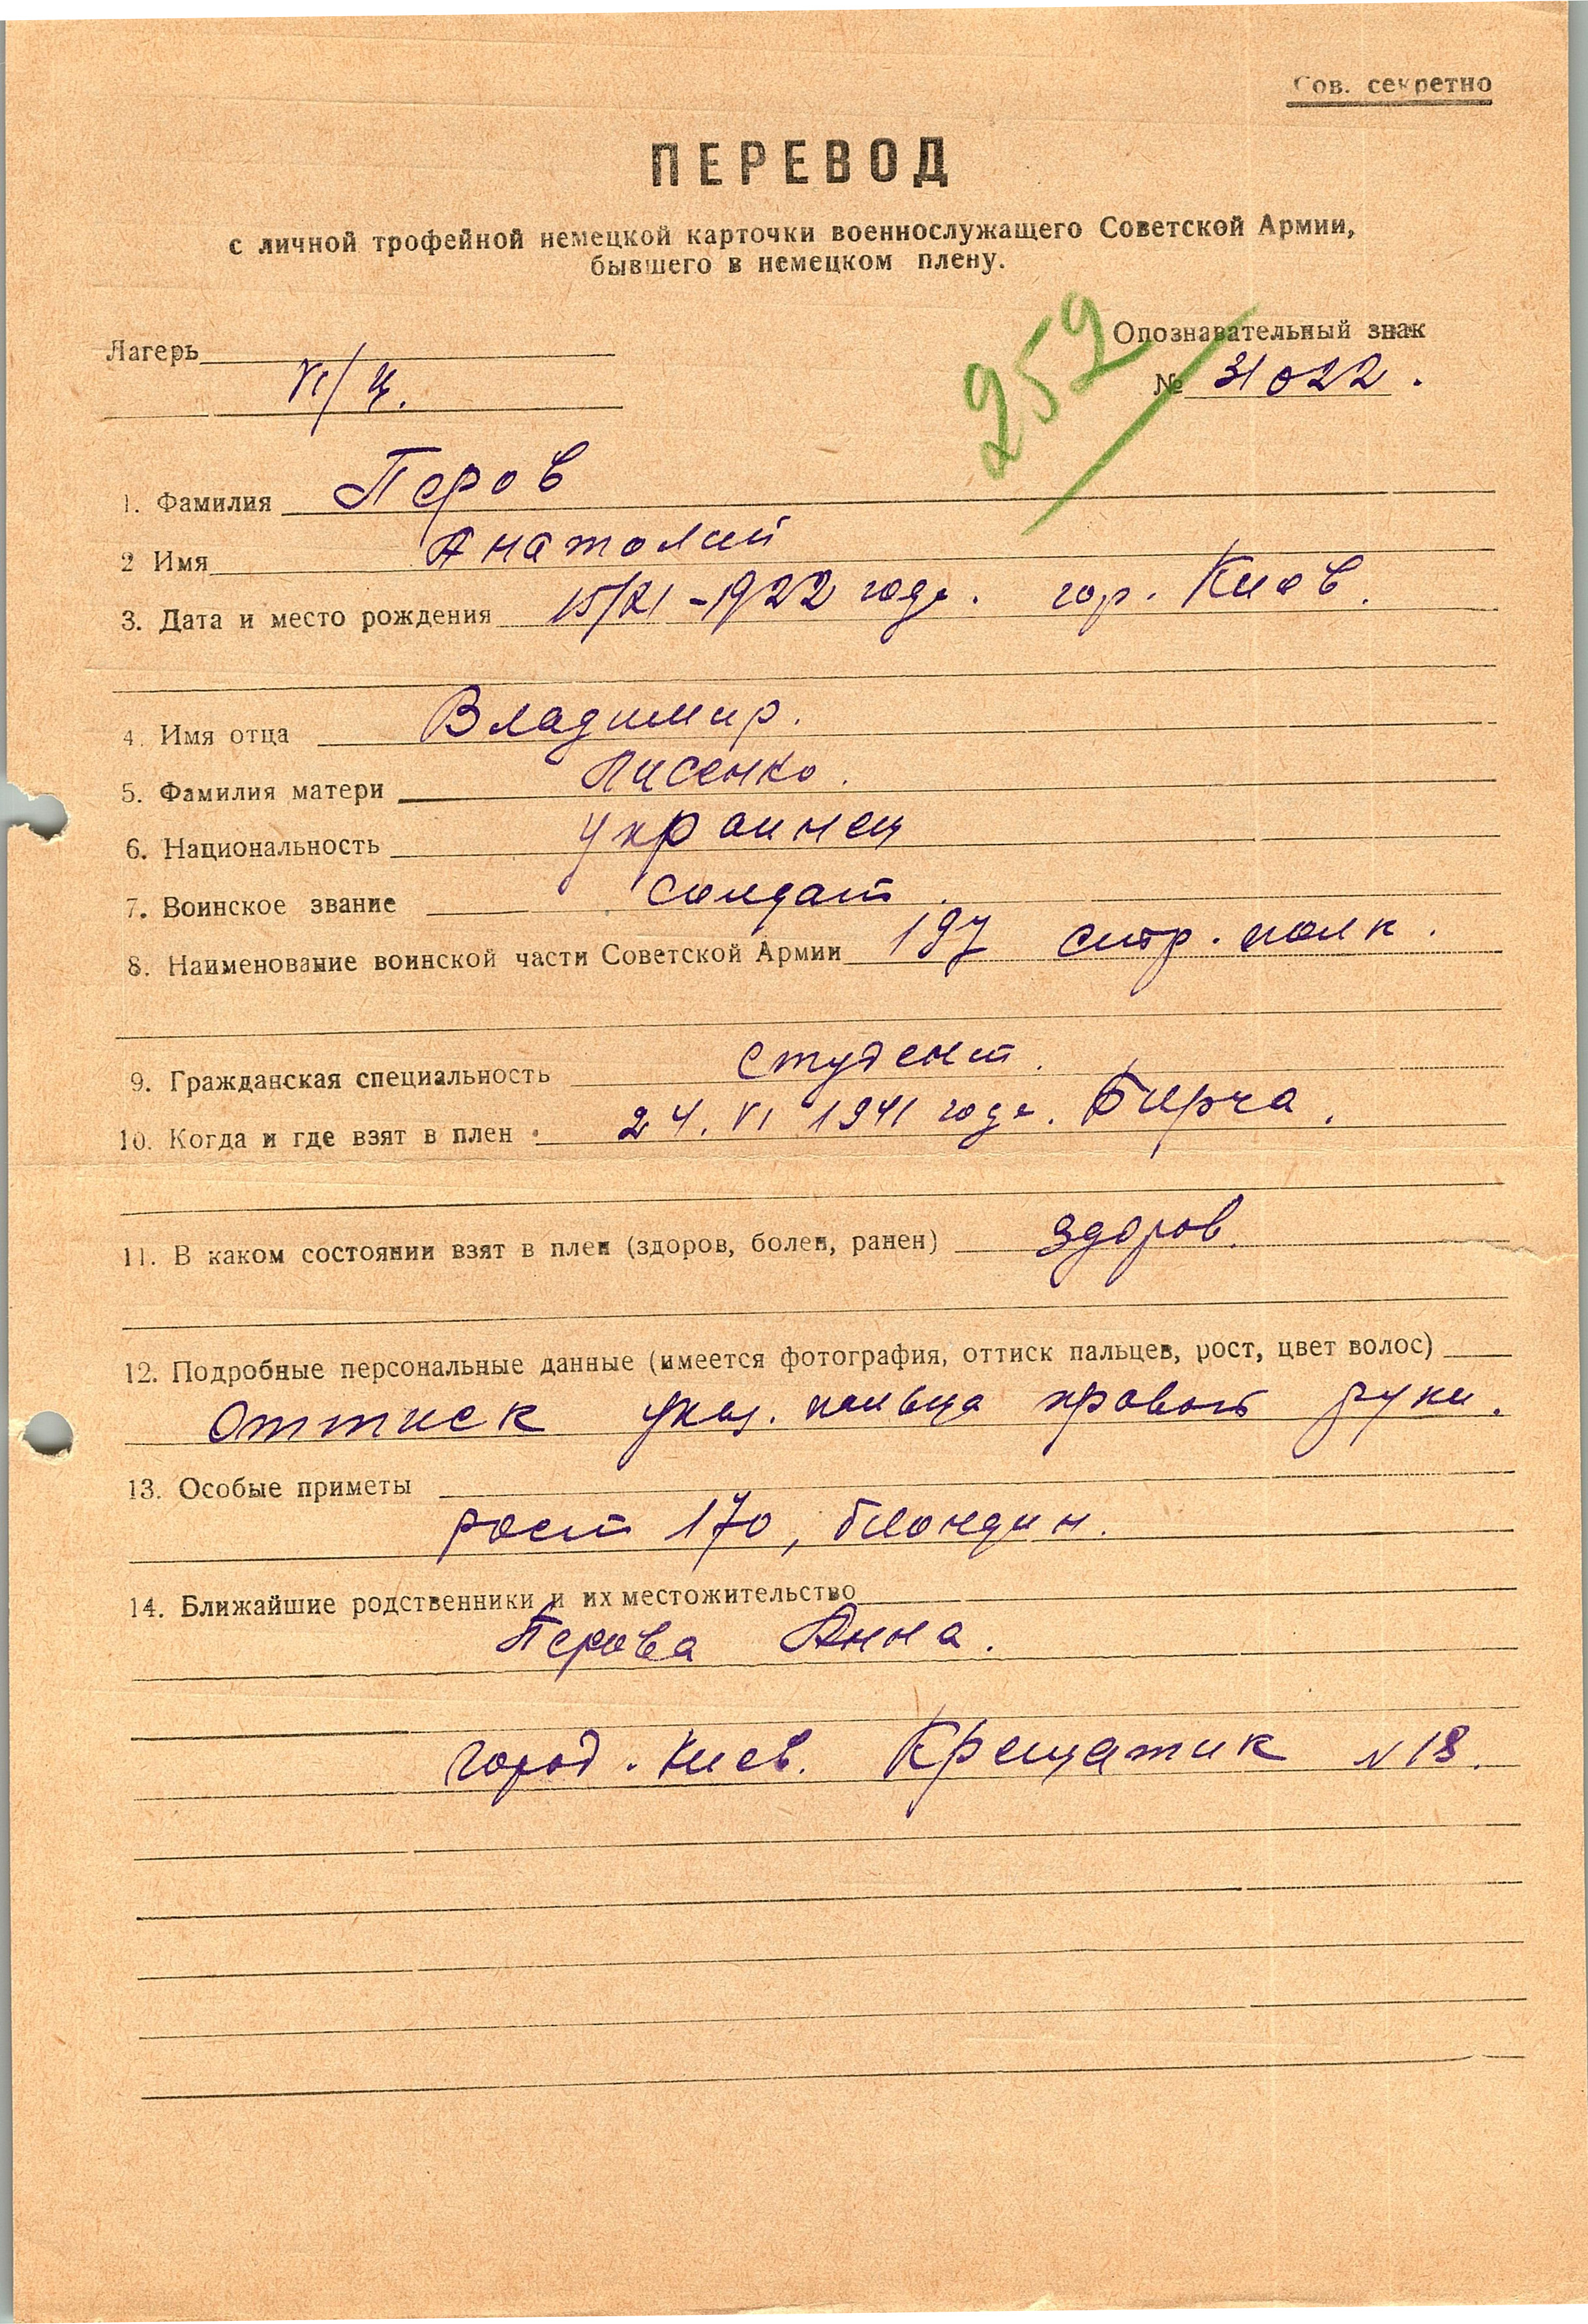 Сов. секретно
ПЕРЕВОД
с личной трофейной немецкой карточки военнослужащего Советской Армии,
бывшего в немецком плену.
252
Лагерь
Опознавательный знак
VI/Ц.
№ 31022.
1. Фамилия Перов
2 Имя Анатолий
3. Дата и место рождения 15/XI-1922 года. гор. Киев.
4. Имя отца Владимир.
5. Фамилия матери Лисенко.
6. Национальность украинец
7. Воинское звание солдат.
8. Наименование воинской части Советской Армии 197 стр. полк.
9. Гражданская специальность студент.
10. Когда и где взят в плен 24. VI 1941 года. Бирча.
11. В каком состоянии взят в плен (здоров, болен, ранен) здоров.
12. Подробные персональные данные (имеется фотография, оттиск пальцев, рост, цвет волос)
Оттиск указ. пальца правой руки.
13. Особые приметы
рост 170, блондин.
14. Ближайшие родственники и их местожительство
Перова Анна.
город. Киев. Крещатик N 18.